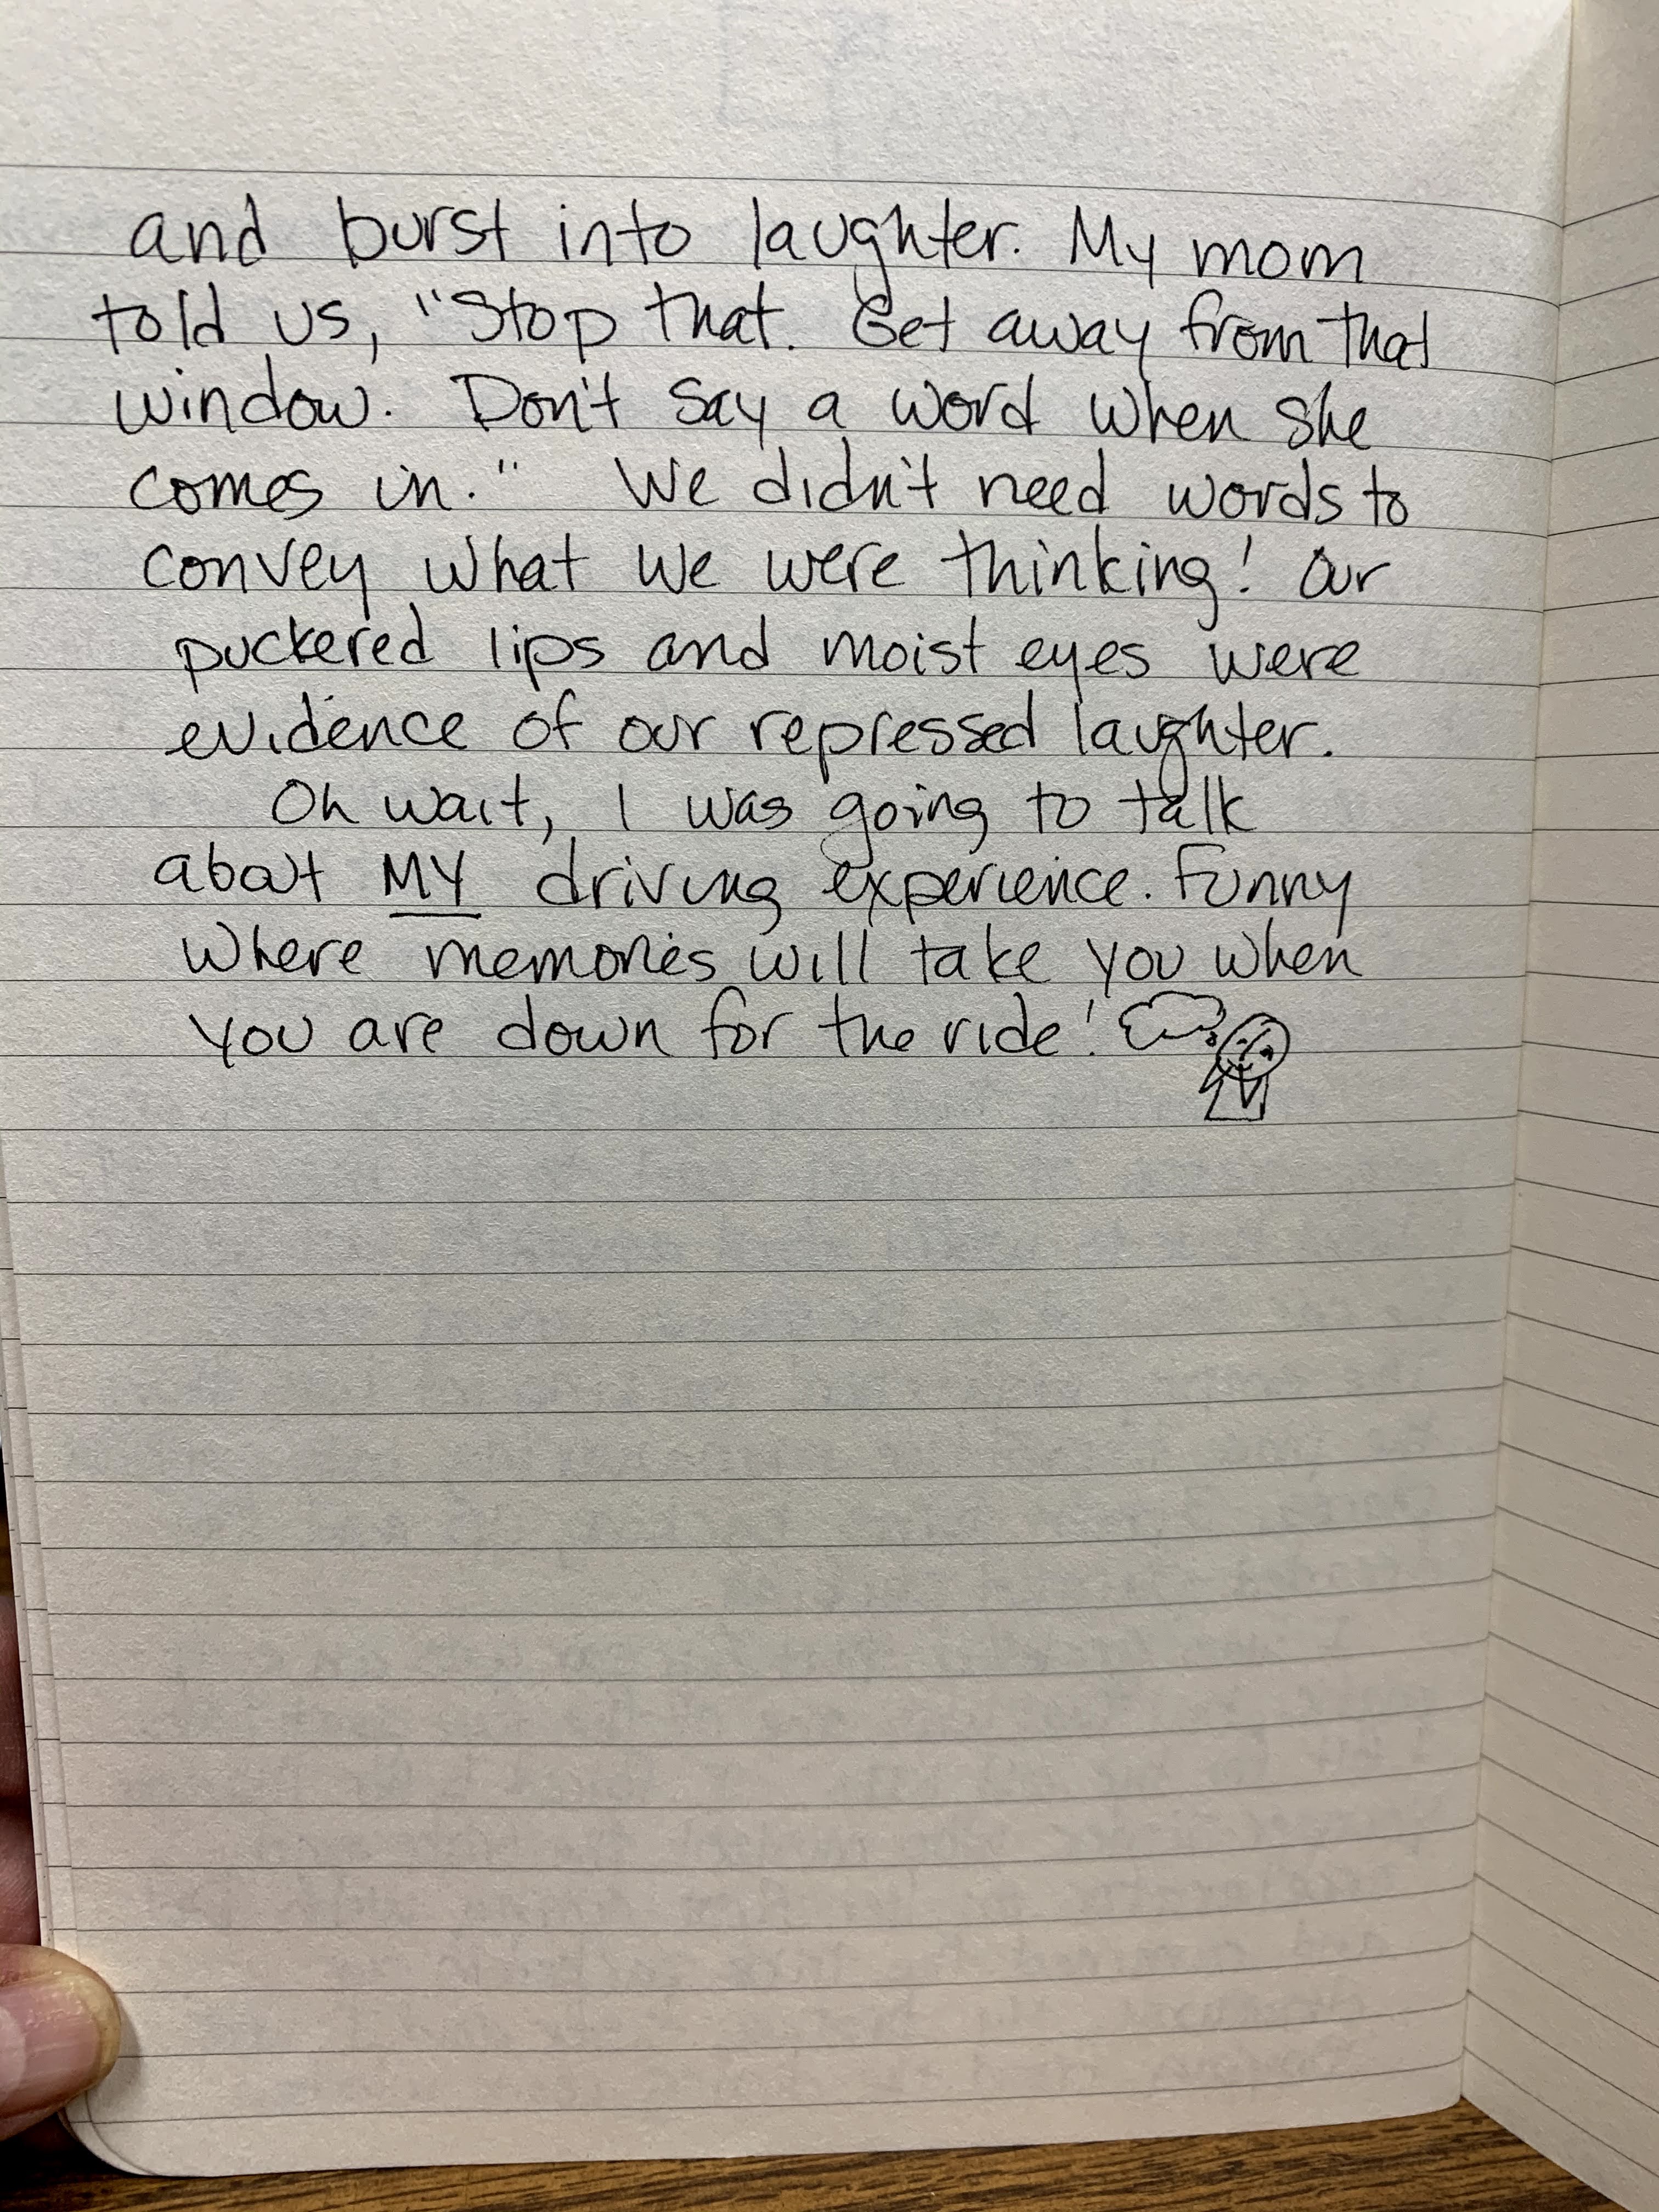 and burst into laughter. My mom
told us, "Stop that. Get away from that
window. Don't say a word when she
comes in." We didn't need words to
convey what we were thinking! Our
puckered lips and moist eyes were
evidence of our repressed laughter.
Oh wait, I was going to talk
about MY driving experience. Funny
where memories will take you when
you are down for the ride!